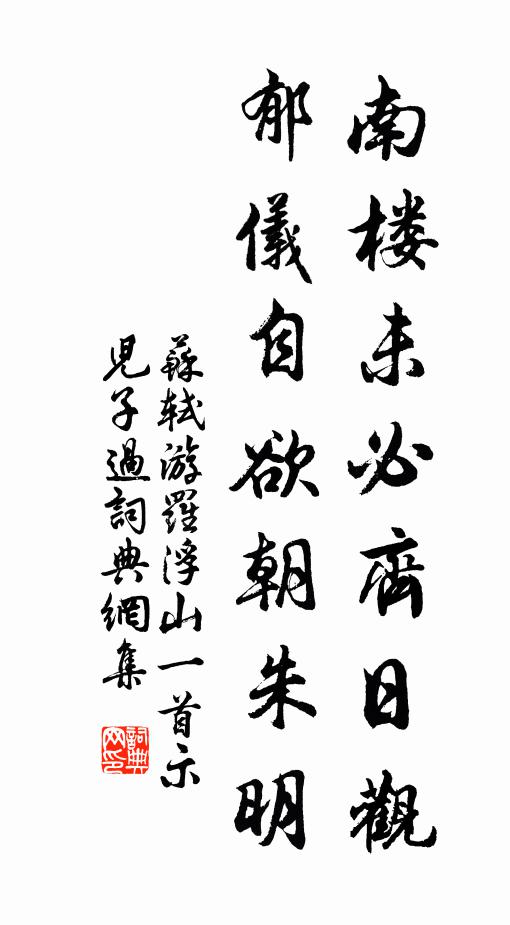 南楼未必齊日觀
郁儀自欲朝朱明
蘇軾游羅浮山一首示
兒子過詞典網集
詞典网印